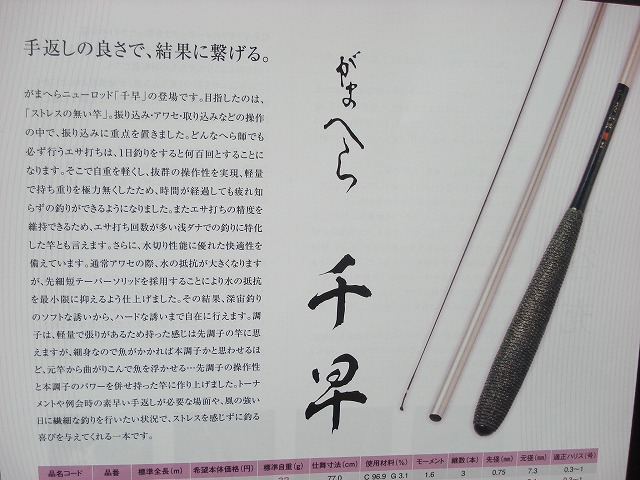 手返しの良さで、結果に繋げる。
がまへらニューロッド「千早」の登場です。目指したのは、
「ストレスの無い竿」。振り込み・アワセ・取り込みなどの操作
の中で、振り込みに重点を置きました。どんなへら師でも
必ず行うエサ打ちは、1日釣りをすると何百回とすることに
なります。そこで自重を軽くし、抜群の操作性を実現、軽量
で持ち重りを極力無くしたため、時間が経過しても疲れ知
らずの釣りができるようになりました。またエサ打ちの精度を
維持できるため、エサ打ち回数が多い浅ダナでの釣りに特化
した竿とも言えます。さらに、水切り性能に優れた快適性を
備えています。通常アワセの際、水の抵抗が大きくなります
が、先細短テーパーソリッドを採用することにより水の抵抗
を最小限に抑えるよう仕上げました。その結果、深宙釣り
のソフトな誘いから、ハードな誘いまで自在に行えます。調
子は、軽量で張りがあるため持った感じは先調子の竿に思
えますが、細身なので魚がかかれば本調子かと思わせるほ
ど、元竿から曲がりこんで魚を浮かせる…先調子の操作性
と本調子のパワーを併せ持った竿に作り上げました。トーナ
メントや例会時の素早い手返しが必要な場面や、風の強い
日に繊細な釣りを行いたい状況で、ストレスを感じずに釣る
喜びを与えてくれる一本です。
がまへら
千早
品名コード 品番 標準全長(m) 希望本体価格(円) 標準自重(g) 仕舞寸法(cm) 使用材料(%) モーメント 継数(本) 先径(mm) 元径(mm) 適正ハリス(号)
77.0 C 96.9 G 3.1 1.6 3 0.75 7.3 0.3〜1